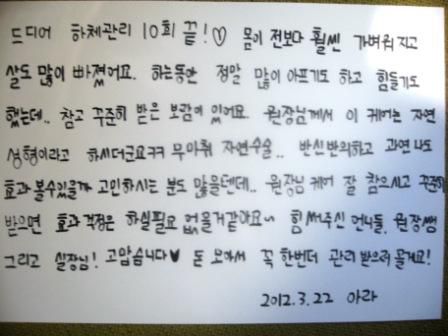 드디어 하체관리 10회 끝!♡ 몸이 전보다 훨씬 가벼워지고
살도 많이 빠졌어요. 하는동안 정말 많이 아프기도 하고 힘들기도
했는데.. 참고 꾸준히 받은 보람이 있어요. 원장님께서 이 케어는 자연
성형이라고 하시더군요ㅋㅋ 무마취 자연수술.. 반신반의하고 과연 나도
효과 볼수있을까 고민하시는 분도 많을텐데.. 원장님 케어 잘 참으시고 꾸준히
받으면 효과 걱정은 하실필요 없을거같아요~ 힘써주신 언니들, 원장쌤
그리고 실장님! 고맙습니다♥ 돈 모아서 꼭 한번더 관리 받으러 올게요!
2012.3.22 아라